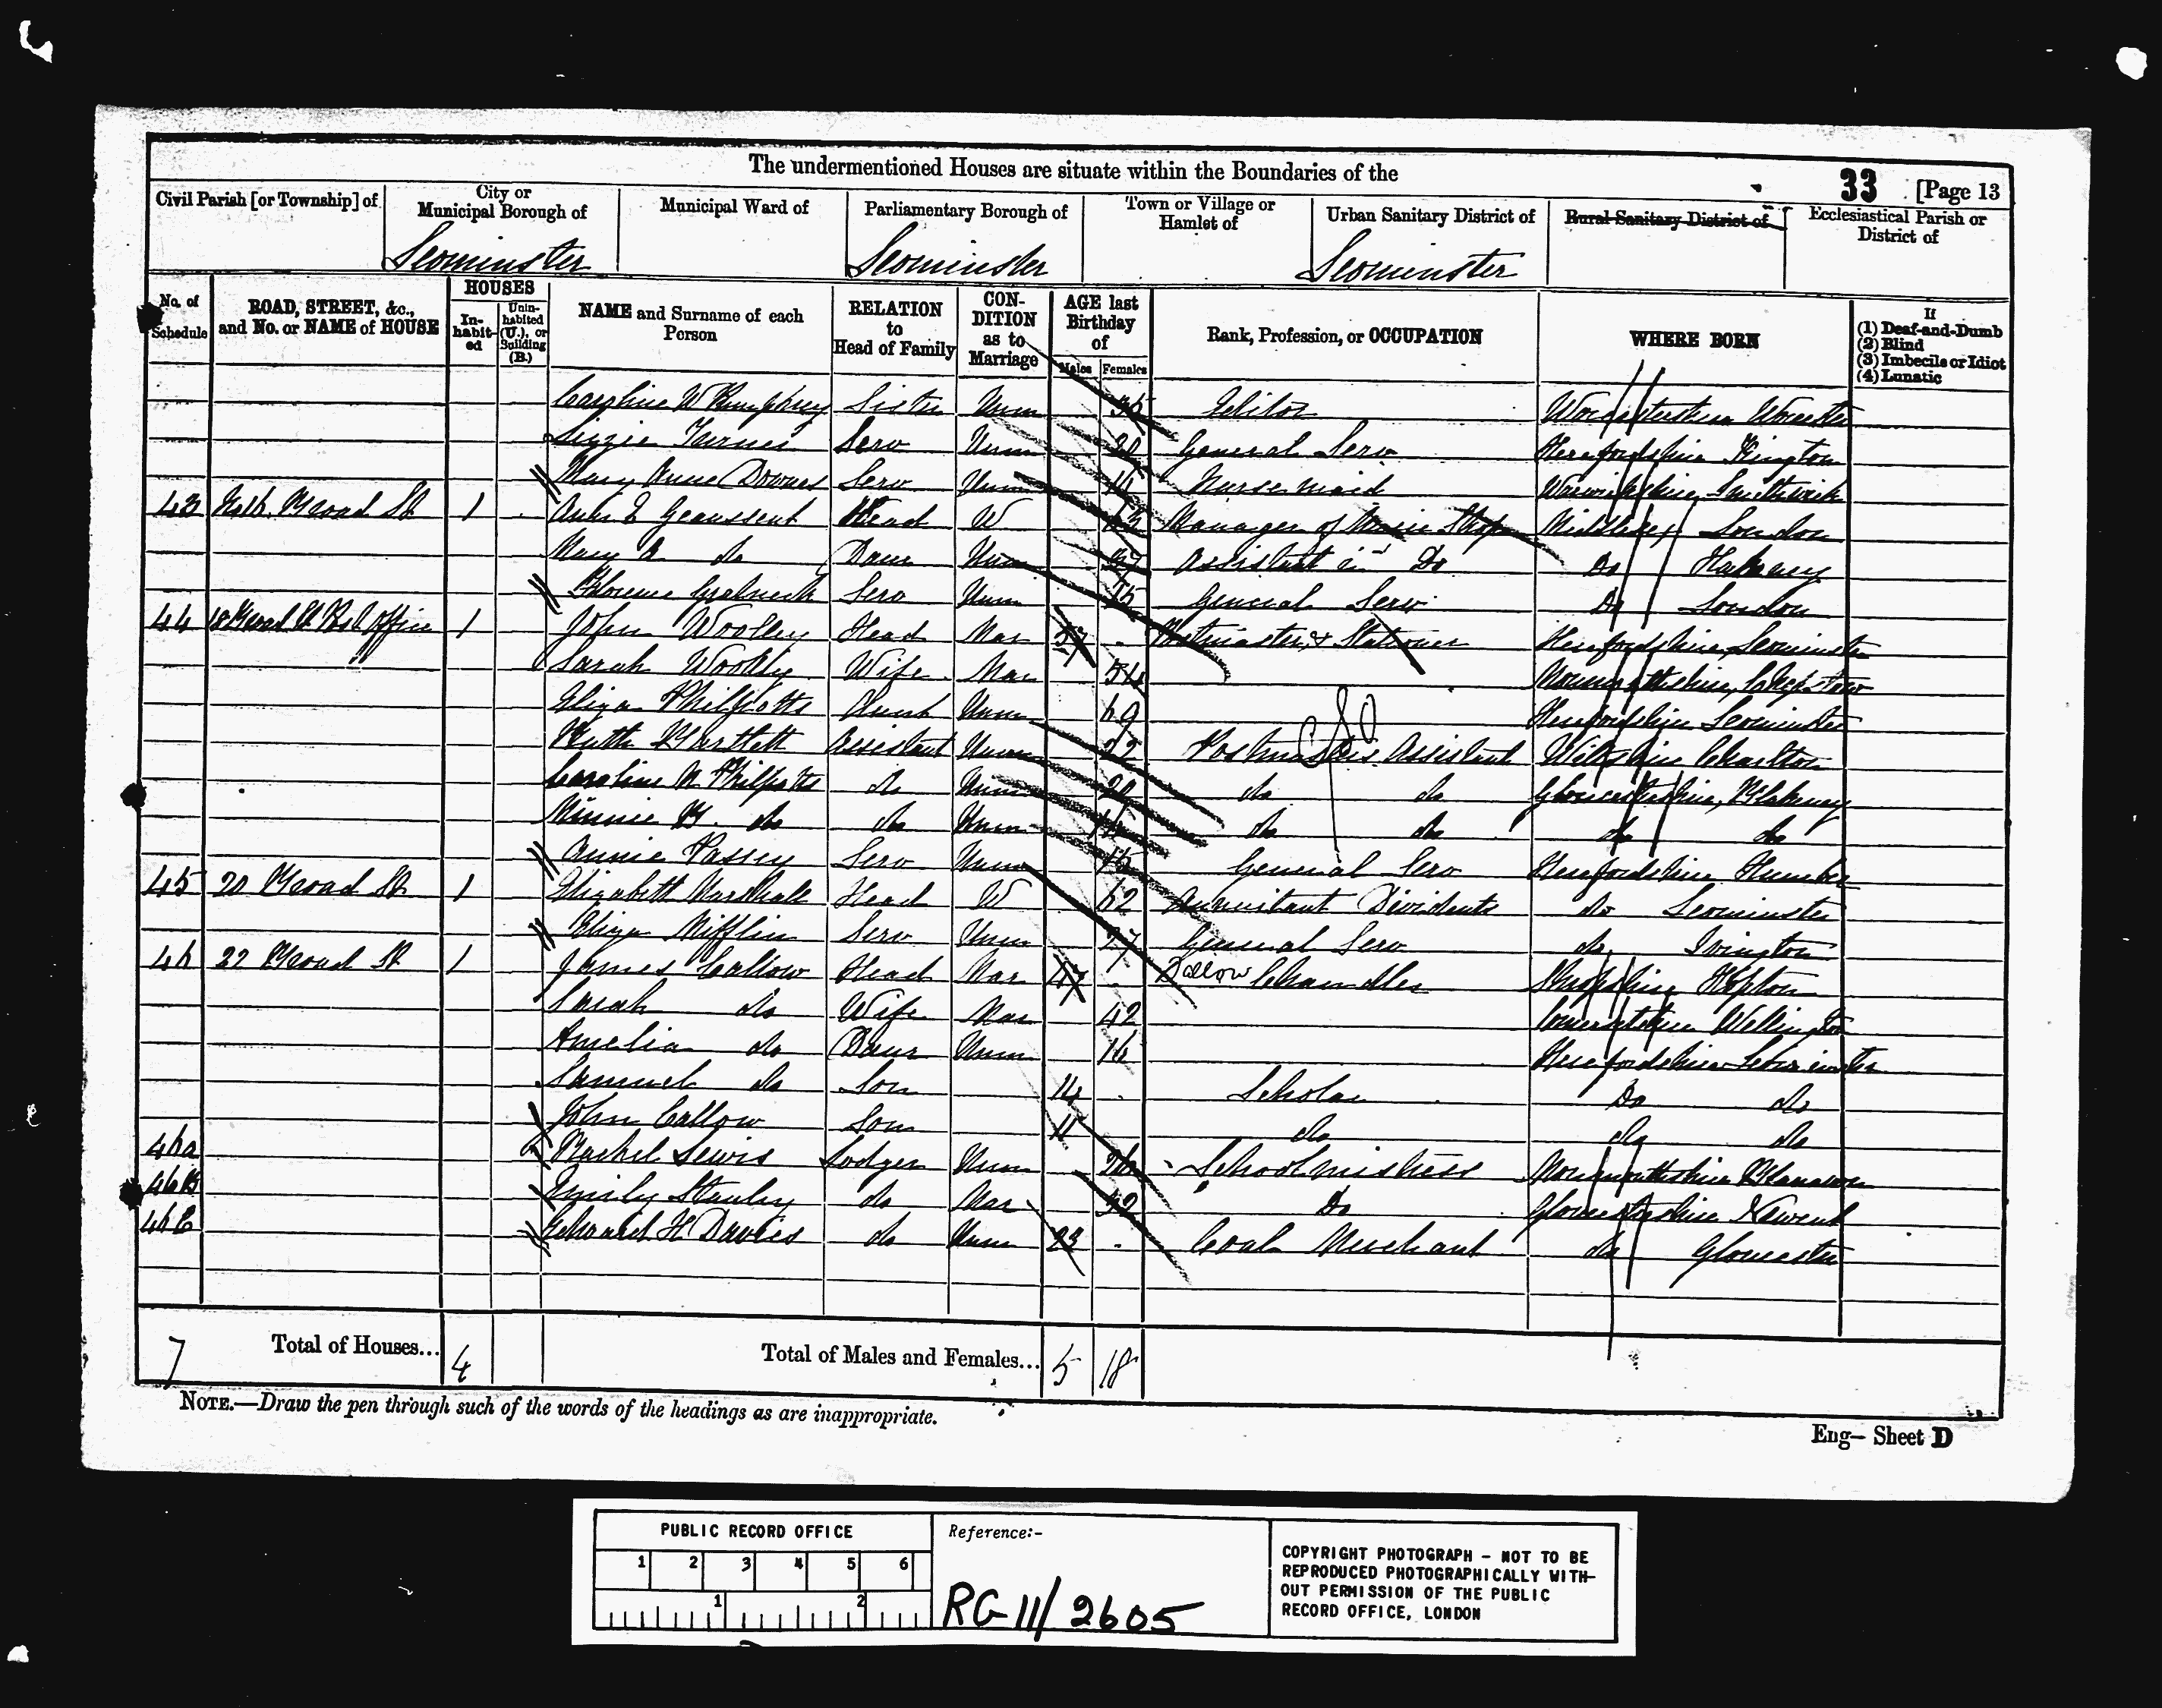 The undermentioned Houses are situate within the Boundaries of the
33 [Page 13
Civil Parish [or Township] of
City or Municipal Borough of
Municipal Ward of
Parliamentary Borough of
Town or Village or Hamlet of
Urban Sanitary District of
Rural Sanitary District of
Ecclesiastical Parish or District of
Leominster Leominster Leominster
No. of Schedule
ROAD, STREET, &c., and No. or NAME of HOUSE
HOUSES
Inhabited
Uninhabited (U.), or Building (B.)
NAME and Surname of each Person
RELATION to Head of Family
CONDITION as to Marriage
AGE last Birthday of
Males Females
Rank, Profession, or OCCUPATION
WHERE BORN
If
(1) Deaf-and-Dumb
(2) Blind
(3) Imbecile or Idiot
(4) Lunatic
Caroline W Humphrey Sister Unm Editor Worcestershire Worcester
Lizzie Turner Serv Unm 20 General Serv Herefordshire Kington
Mary Anne Downes Serv Unm Nurse maid Warwickshire Smethwick
43 Broad St 1 Ann E Geaussent Head W Manager of Music Shop Middlesex London
Mary A do Daur Unm 27 Assistant in Do Do Hackney
Florence Serv Unm 15 General Serv Do London
44 18 Broad St Post Office 1 John Woolley Head Mar 57 Postmaster & Stationer Herefordshire Leominster
Sarah Woolley Wife Mar 54 Monmouthshire, Chepstow
Eliza Philpotts Aunt Unm 69 Herefordshire Leominster
Ruth Bartlett Assistant Unm 22 Postmasters Assistant Wiltshire Charlton
Caroline M Philpotts do Unm do do Gloucestershire, Blakeney
Minnie B. do do Unm do do do do
Annie Passey Serv Unm 15 General Serv Herefordshire Humber
45 20 Broad St 1 Elizabeth Marshall Head W 62 Annuitant Dividents do Leominster
Eliza Mifflin Serv Unm 27 General Serv do Ivington
46 22 Broad St 1 James Callow Head Mar 47 Tallow Chandler Shropshire Hopton
Sarah do Wife Mar 42 Somersetshire Wellington
Amelia do Daur Unm 16 Herefordshire Leominster
Samuel do Son 14 Scholar Do do
John Callow Son 11 do do do
46a Rachel Lewis Lodger Unm 26 Schoolmistress Monmouthshire
46B Emily Stanley do Mar 32 Do Gloucestershire Newent
46C Edward H Davies do Unm 23 Coal Merchant do Gloucester
7 Total of Houses... 4 Total of Males and Females... 5 18
NOTE.—Draw the pen through such of the words of the headings as are inappropriate.
Eng— Sheet D
PUBLIC RECORD OFFICE
1 2 3 4 5 6
1 2
Reference:-
RG 11/2605
COPYRIGHT PHOTOGRAPH – NOT TO BE
REPRODUCED PHOTOGRAPHICALLY WITH-
OUT PERMISSION OF THE PUBLIC
RECORD OFFICE, LONDON